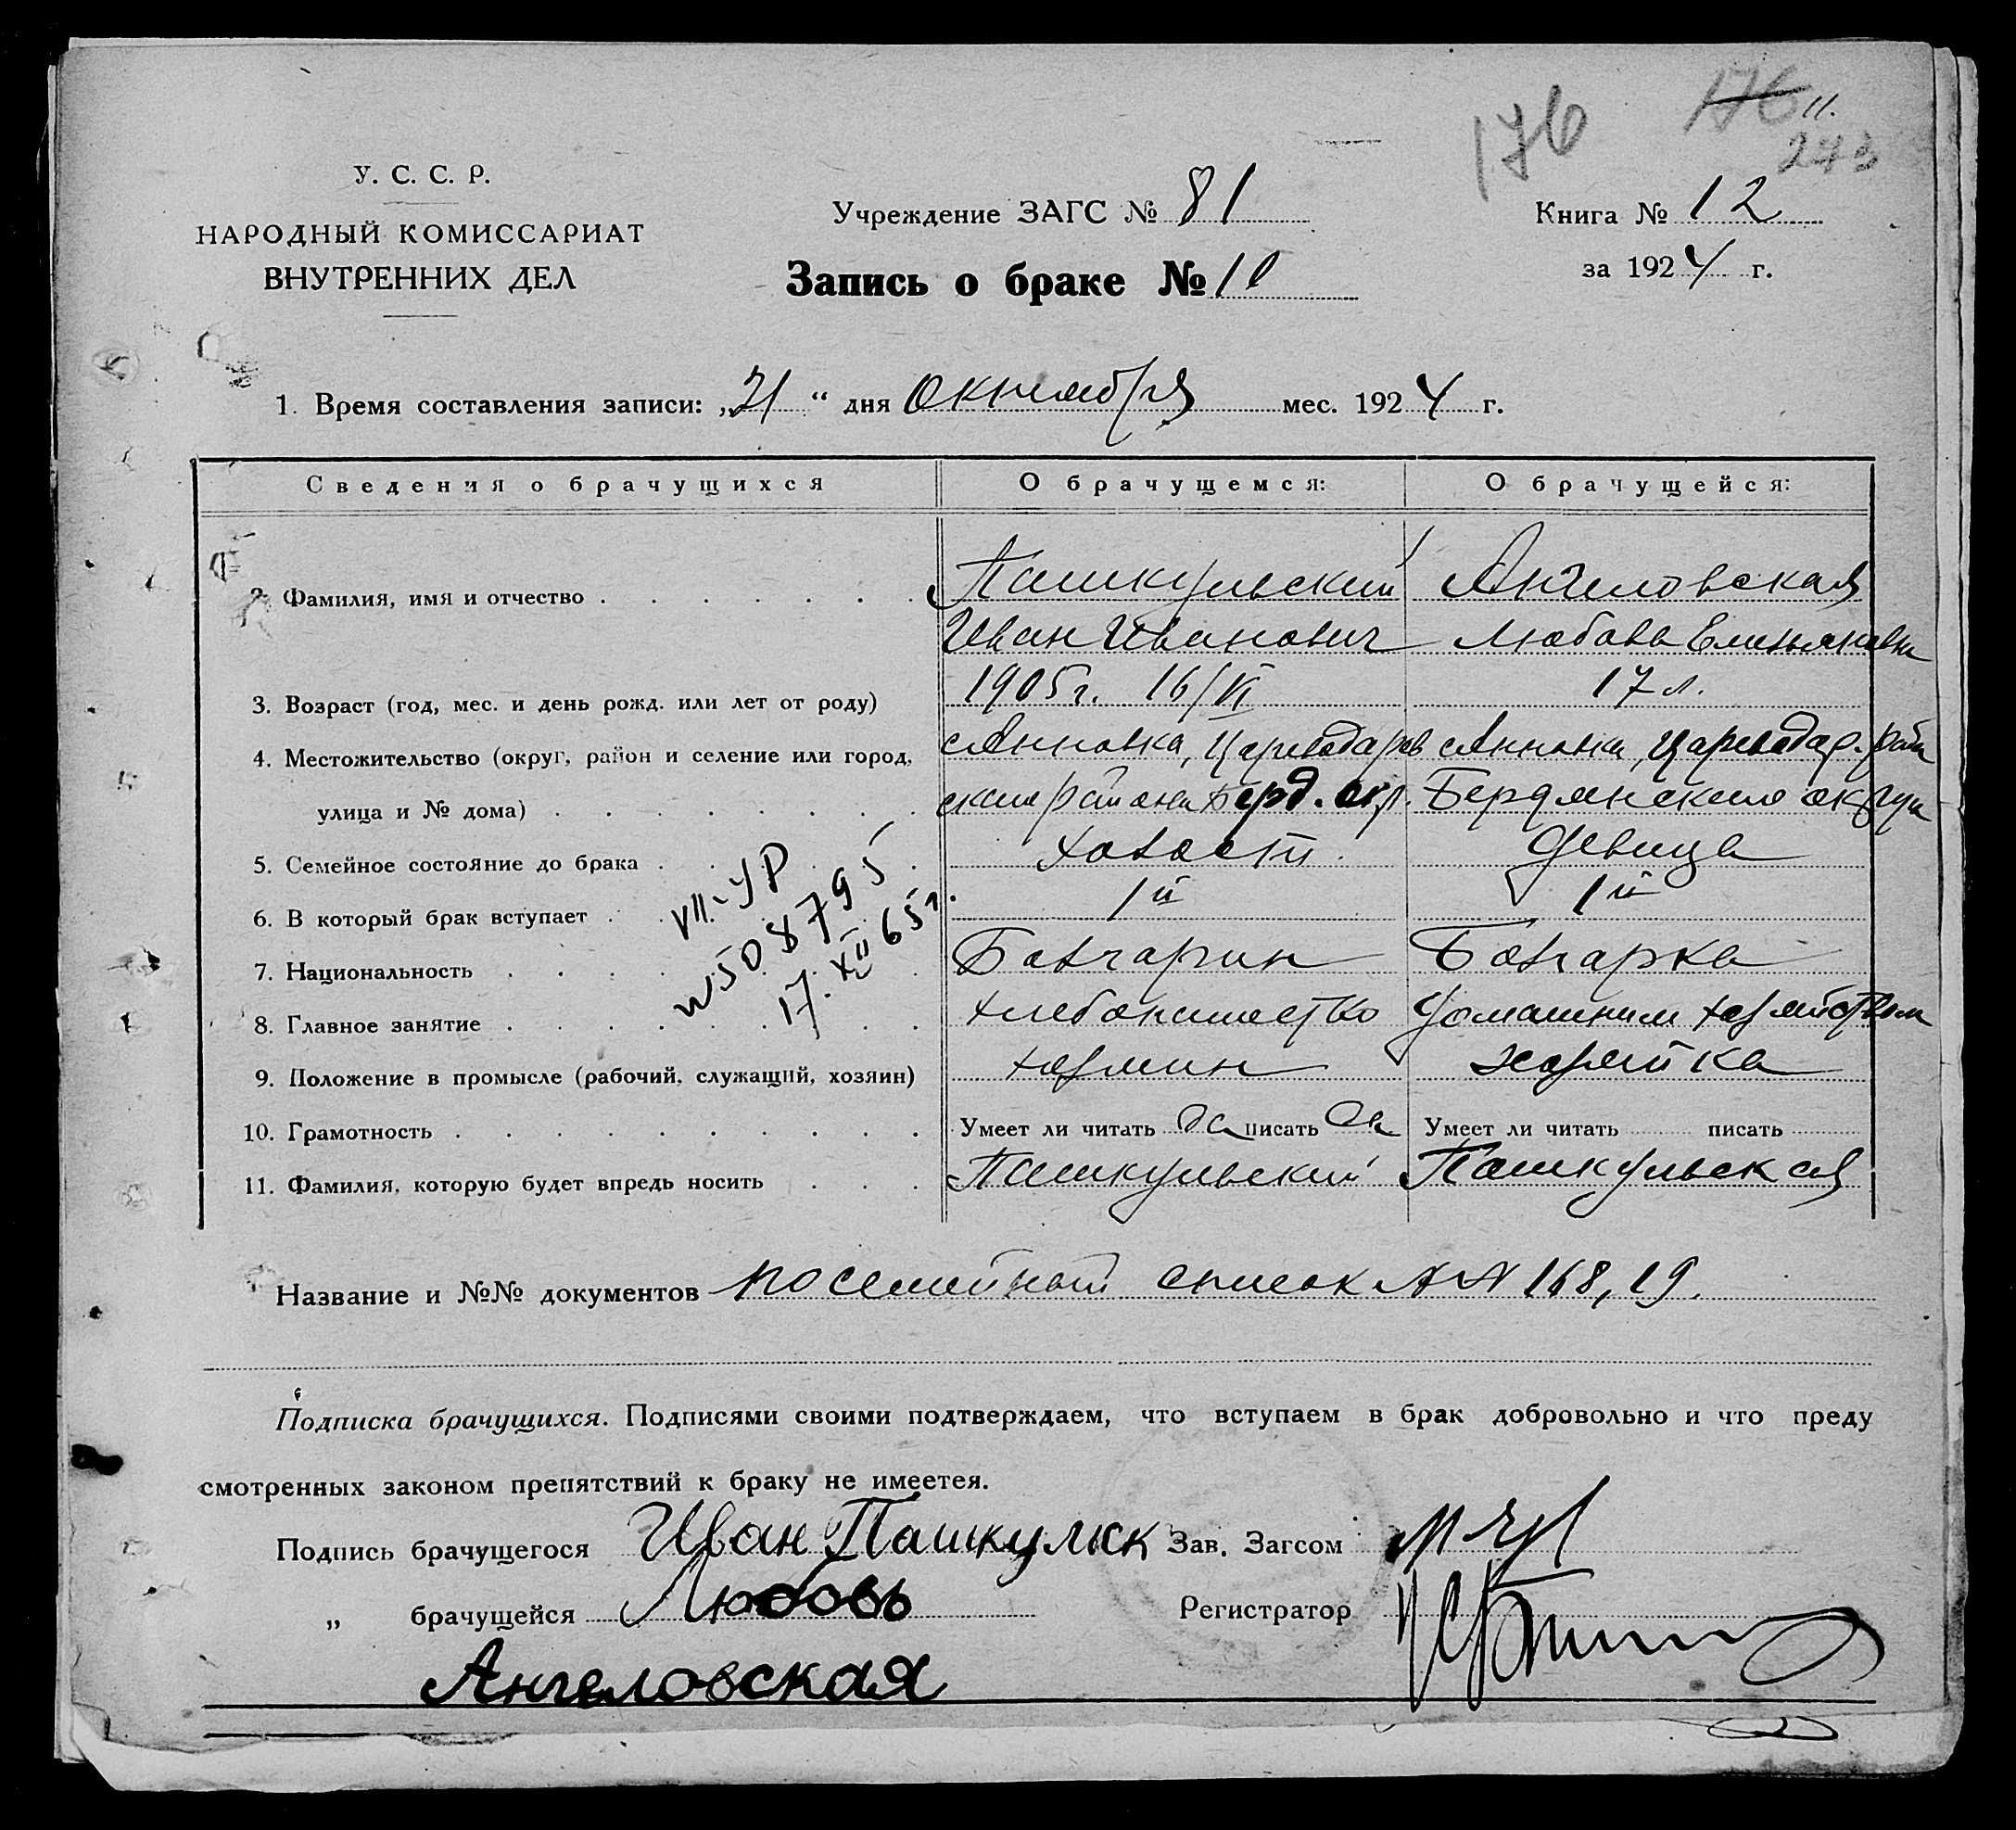 176
176 11.
243
У. С. С. Р.
НАРОДНЫЙ КОМИССАРИАТ
ВНУТРЕННИХ ДЕЛ
Учреждение ЗАГС № 81
Книга № 12
за 1924 г.
Запись о браке №
1. Время составления записи: „21“ дня Октября мес. 1924 г.
Сведения о брачущихся О брачущемся: О брачущейся:
2. Фамилия, имя и отчество Пашкульский Ангеловская
Иван Иванович Любовь Емельяновна
3. Возраст (год, мес. и день рожд. или лет от роду) 1905 г. 16/VI 17 л.
4. Местожительство (округ, район и селение или город, с Анновка, Цареводаров с Анновки, Цареводар. райа
улица и № дома) скаго района Берд. окр. Бердянскаго округа
5. Семейное состояние до брака холост девица
6. В который брак вступает 1й 1й
7. Национальность Болгарин Болгарка
8. Главное занятие хлебопашество Домашним хозяйством
9. Положение в промысле (рабочий, служащий, хозяин) хозяин хозяйка
VII-УР
№508795
17. XII 65 г.
10. Грамотность Умеет ли читать да писать да Умеет ли читать писать
11. Фамилия, которую будет впредь носить Пашкульский Пашкульская
Название и №№ документов посемейный список №№ 168, 19.
Подписка брачущихся. Подписями своими подтверждаем, что вступаем в брак добровольно и что преду
смотренных законом препятствий к браку не имеетея.
Подпись брачущегося Иван Пашкульск Зав. Загсом
„ брачущейся Любовь Регистратор
Ангеловская